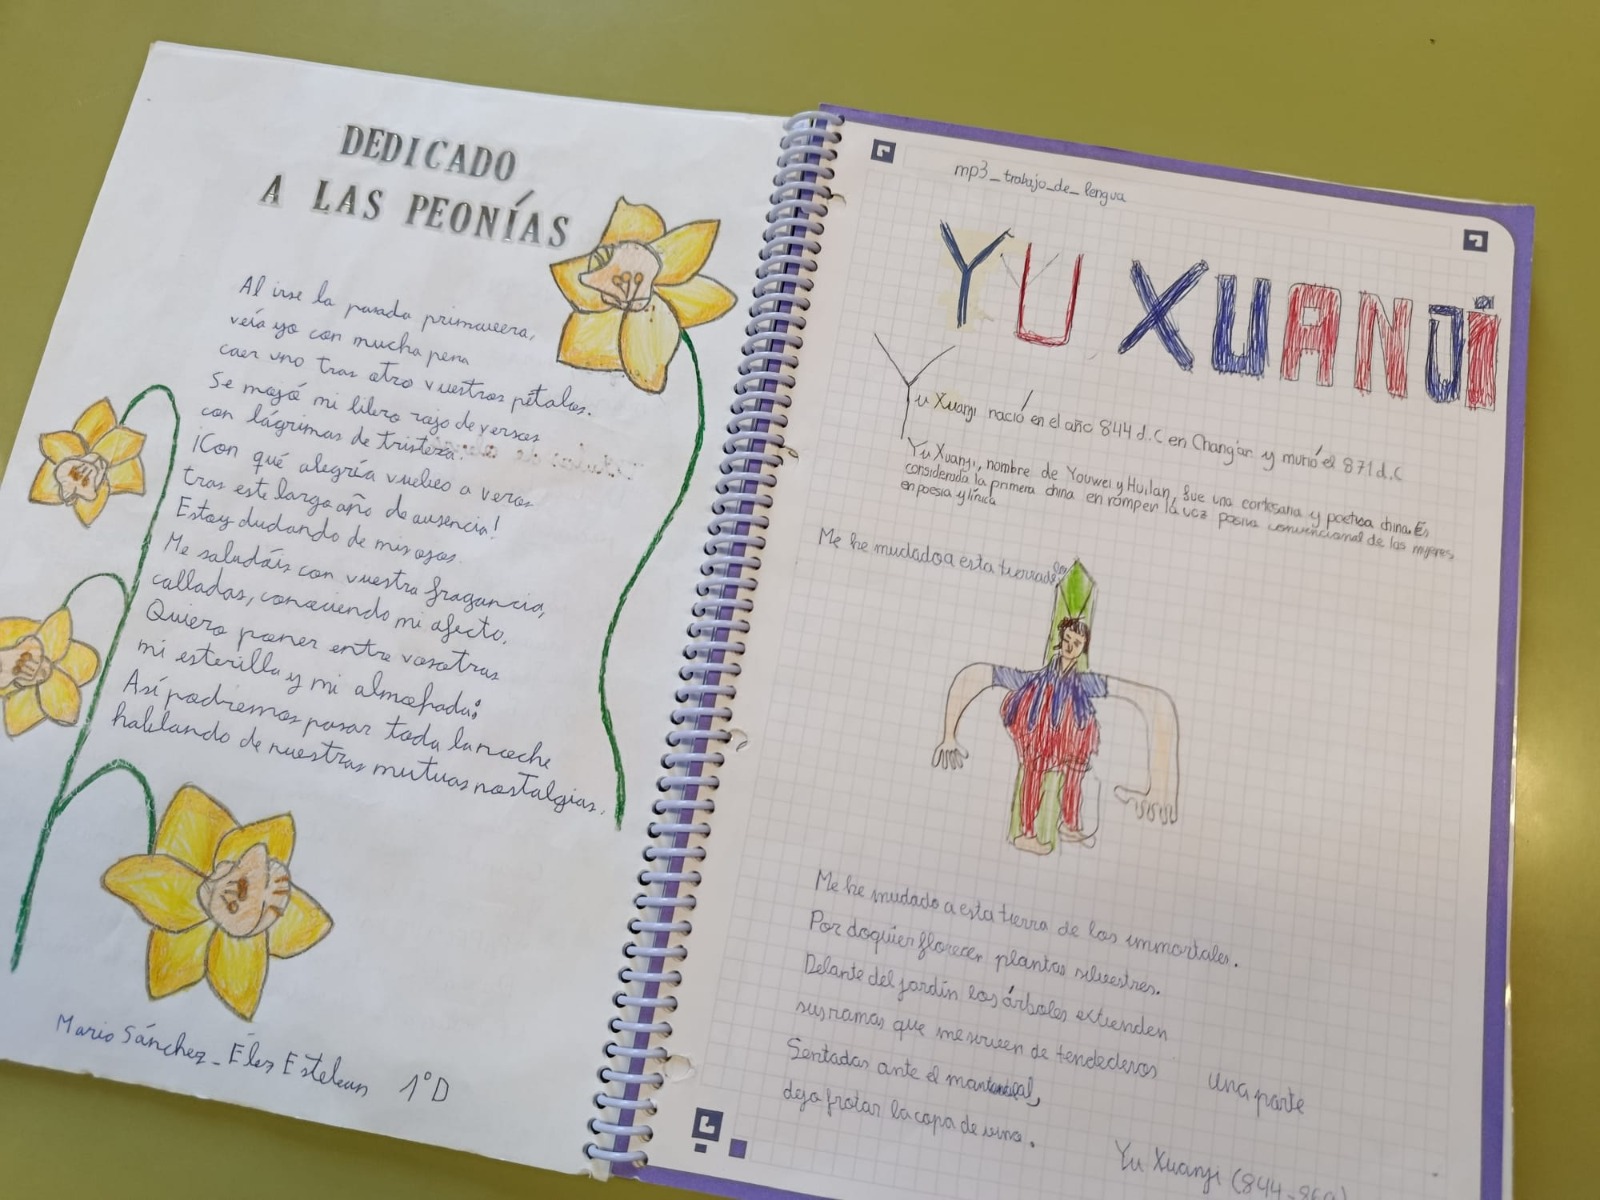 DEDICADO
A LAS PEONÍAS
Al irse la pasada primavera,
veía yo con mucha pena
caer uno tras otro vuestros pétalos.
Se mojó mi libro rojo de versos
con lágrimas de tristeza.
¡Con qué alegría vuelvo a veros
tras este largo año de ausencia!
Estoy dudando de mis ojos.
Me saludáis con vuestra fragancia,
calladas, conociendo mi afecto.
Quiero poner entre vosotras
mi esterilla y mi almohada;
Así podremos pasar toda la noche
hablando de nuestras mutuas nostalgias.
Mario Sánchez_ Esteban 1ºD
mp3_trabajo_de_lengua
YU XUANJI
Yu Xuanji nació en el año 844 d.C en Chang'an y murió el 871 d.C
Yu Xuanji, nombre de Youwei y Huilan, fue una cortesana y poetisa china. Es
considerada la primera china en romper la voz pasiva convencional de las mujeres
en poesia y lírica
Me he mudado a esta tierra de los
Me he mudado a esta tierra de los immortales.
Por doquier florecen plantas silvestres.
Delante del jardín los árboles extienden
sus ramas que me sirven de tendederos
Sentadas ante el manantial,
dejo frotar la copa de vino.
una parte
Yu Xuanji (844-869)